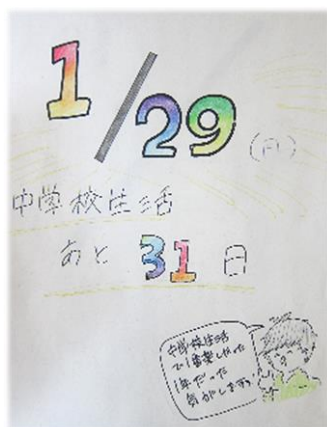 1/29
中学校生活
あと 31 日
中学校生活
で1番楽しかった
1年だった
気がします。